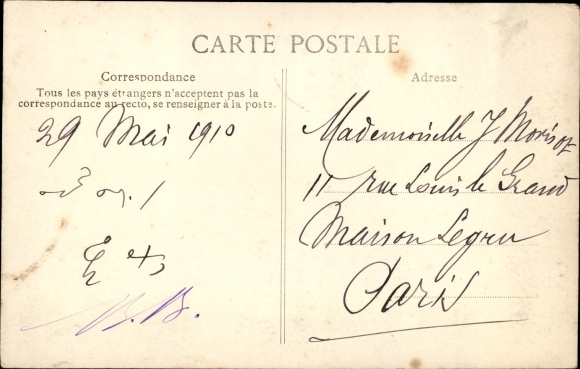 CARTE POSTALE
Correspondance
Tous les pays étrangers n'acceptent pas la
correspondance au recto, se renseigner à la poste.
29 Mai 1910
B. B.
Adresse
Mademoiselle J Morisot
11 rue Louis le Grand
Maison Legru
Paris